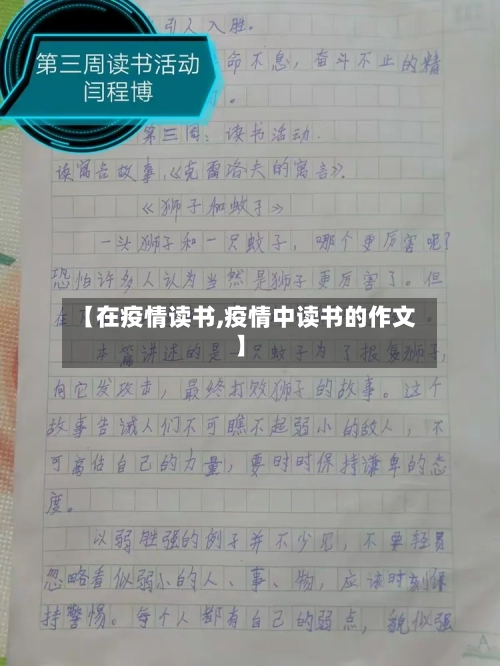 引人入胜。
第三周读书活动
闫程博
命不息，奋斗不止的精
。
第三周：读书活动.
读寓言故事，《克雷洛夫的寓言》.
《狮子和蚊子》
一头狮子和一只蚊子，哪个更厉害呢?
恐怕许多人认为当然是狮子更厉害了。但
【在疫情读书,疫情中读书的作文
】
在
本篇讲述的是一只蚊子为了报复狮子,
向它发攻击，最终打败狮子的故事。这个
故事告诫人们不可瞧不起弱小的敌人，不
可高估自己的力量，要时时保持谦卑的态
度。
以弱胜强的例子并不少见，不要轻易
忽略看似弱小的人、事、物，应该时刻保
持警惕。每个人都有自己的弱点，貌似强